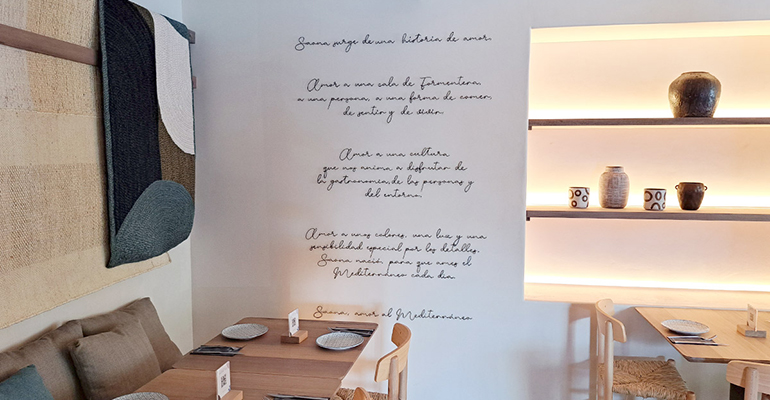 Saona surge de una historia de amor.
Amor a una cala de Formentera,
a una persona, a una forma de comer,
de sentir y de vivir.
Amor a una cultura
que nos anima a disfrutar de
la gastronomía, de las personas y
del entorno.
Amor a unos colores, una luz y una
sensibilidad especial por los detalles.
Saona nació para que ames el
Mediterráneo cada día.
Saona, amor al Mediterráneo.